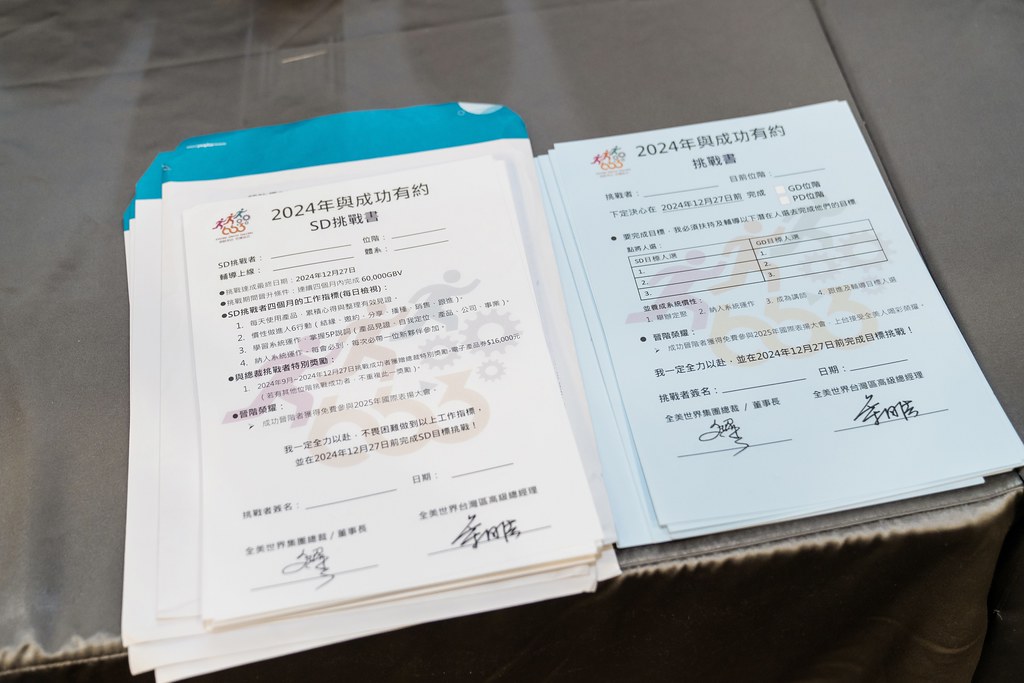 2024年與成功有約
SD挑戰書
SD挑戰者：
位階：
輔導上線：
體系：
●挑戰達成最終日期：2024年12月27日
●挑戰期間晉升條件：連續四個月內完成 60,000GBV
●SD挑戰者四個月的工作指標(每日檢視)：
1. 每天使用產品，累積心得與整理有效見證。
2. 慣性做進人6行動（結緣、邀約、分享、播種、銷售、跟進）。
3. 學習系統運作，掌握5P說詞（產品見證、自我定位、產品、公司、事業）。
4. 納人系統運作~每會必到、每次必帶一位新夥伴參加。
●與總裁挑戰者特別獎勵：
1. 2024年9月~2024年12月27日挑戰成功者獲贈總裁特別獎勵-電子產品券$16,000元
（若有其他位階挑戰成功者，不重複此一獎勵）。
●晉階榮耀：
➢ 成功晉階者獲得免費參與2025年國際表揚大會。
我一定全力以赴，不畏困難做到以上工作指標，
並在2024年12月27日前完成SD目標挑戰！
挑戰者簽名：
日期：
全美世界集團總裁 / 董事長
全美世界台灣區高級總經理
2024年與成功有約
挑戰書
挑戰者：
目前位階：
下定決心在 2024年12月27日前 完成
GD位階
PD位階
● 要完成目標，我必須扶持及輔導以下潛在人選去完成他們的目標
點將人選：
SD目標人選
GD目標人選
1.
1.
2.
2.
3.
3.
並養成系統慣性：
1. 舉辦定聚 2. 納人系統運作 3. 成為講師 4. 跟進及輔導目標人選
● 晉階榮耀：
➢ 成功晉階者獲得免費參與2025年國際表揚大會，上台接受全美人喝彩榮耀。
我一定全力以赴，並在2024年12月27日前完成目標挑戰！
挑戰者簽名：
日期：
全美世界集團總裁 / 董事長
全美世界台灣區高級總經理